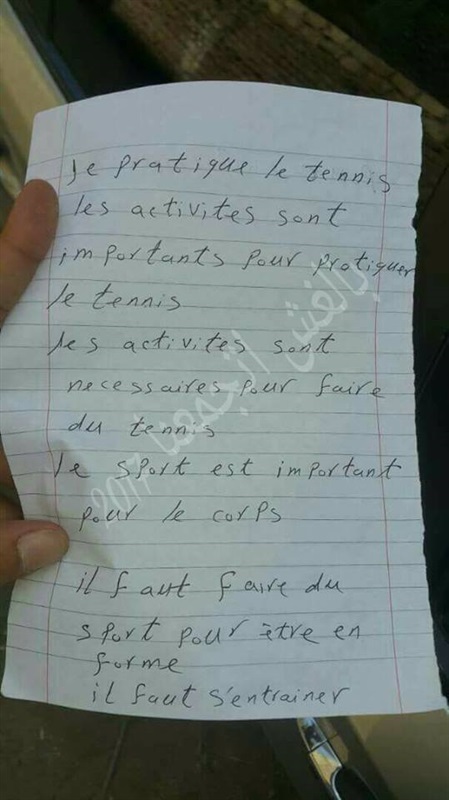 Je pratique le tennis
les activites sont
importants pour pratiquer
le tennis
les activites sont
necessaires pour faire
du tennis
le sport est important
pour le corps
il faut faire du
sport pour être en
forme
il faut s'entrainer
بالغش اتجمعنا 2017